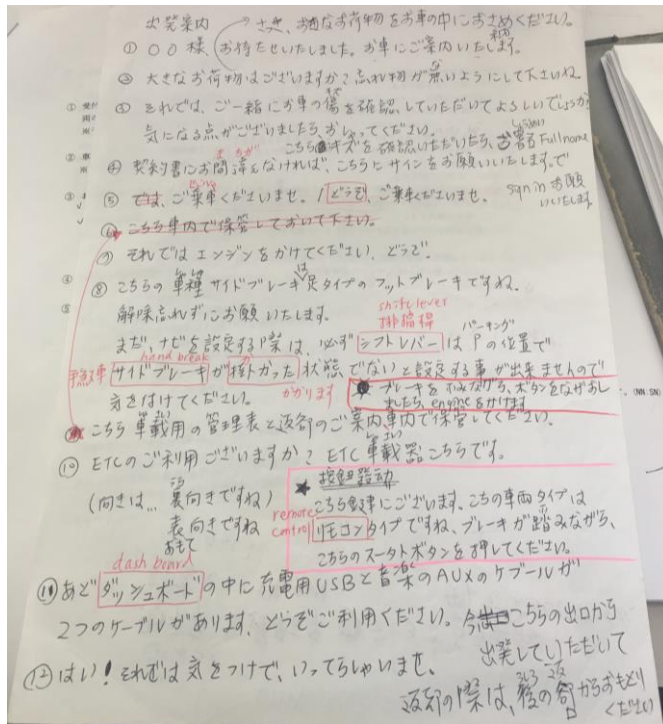 出発案内
さき、お客なお荷物をお車の中におさめください。
① 〇〇様、お待たせいたしました。お車にご案内いたします。
② 大きなお荷物はございますか？忘れ物が無いようにして下さいね。
③ それでは、ご一緒にお車の傷を確認していただいてよろしいでしょうか
気になる点がございましたら、おしゃってください。
こちらキズを確認いただいたら、Full name
④ 契約書にお間違えなければ、こちらにサインをお願いいたします。で
sign in お願いいたします
⑤ では、ご乗車くださいませ。/ どうぞ、ご乗車くださいませ。
⑥ こちら車内で保管しておいて下さい。
⑦ それではエンジンをかけてください、どうぞ。
⑧ こちらの車種サイドブレーキは足タイプのフットブレーキですね。
解除忘れずにお願いいたします。
shift lever
排檔桿
パーキング
まだ、ナビを設定する際は、必ずシフトレバーはPの位置で
hand break
手煞車
サイドブレーキが掛かった状態でないと設定する事が出来ませんので
気を付けてください。
かかります
ブレーキをふみながら、ボタンをながおし
ましたら、engineをかけます
こちら車載用の管理表と返却のご案内、車内で保管してください。
⑩ ETCのご利用ございますか？ETC車載器こちらです。
(向きは… 裏向きですね)
うら
表向きですね
おもて
★ 按鈕啟動
こちら鍵にございます、こちの車両タイプは
remote control
リモコンタイプですね、ブレーキが踏みながら、
こちらのスータトボタンを押してください。
dash board
⑪ あどダッシュボードの中に充電用USBと音楽のAUXのケブールが
2つのケーブルがあります、どうぞご利用ください。
今こちらの出口から
出発していただいて
⑫ はい！それでは気をつけて、いってらしゃいませ、
返却の際は、後の
からおもどり
ください
(NN:SN)